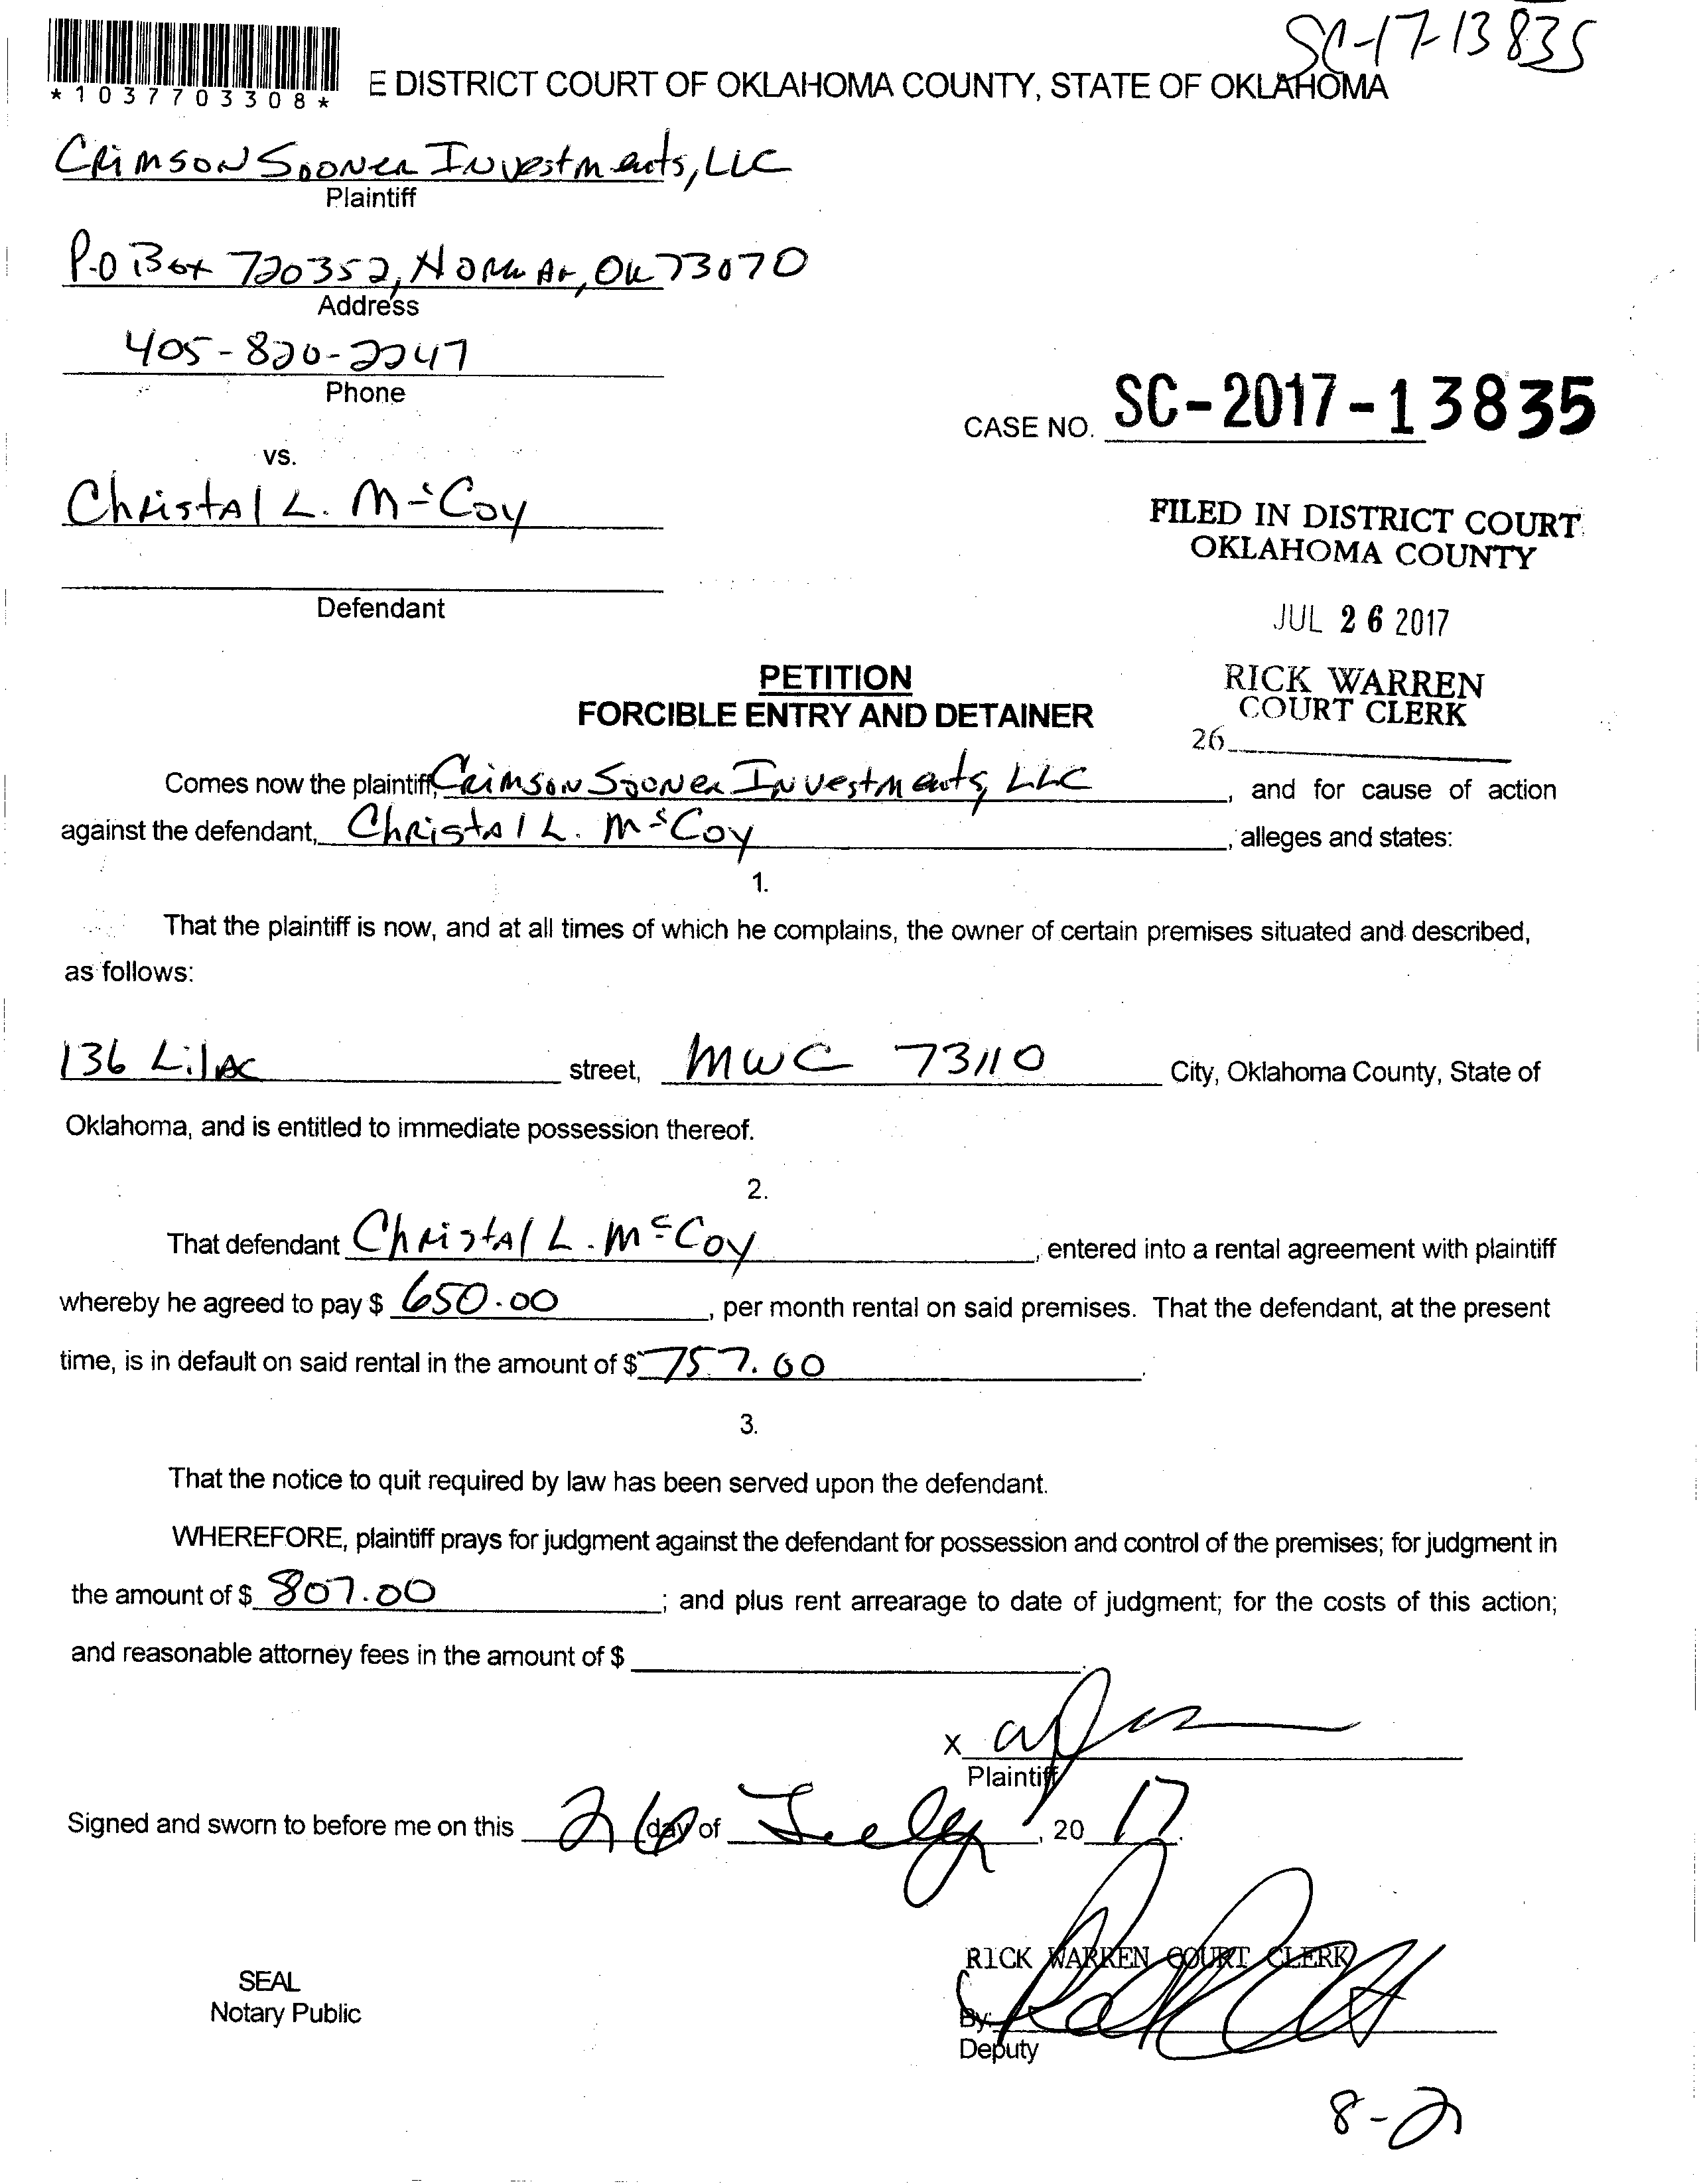 SC-17-13835
*1037703308*
E DISTRICT COURT OF OKLAHOMA COUNTY, STATE OF OKLAHOMA
Crimson Sooner Investments, LLC
Plaintiff
P.O Box 720352, Norman, OK 73070
Address
405-820-2247
Phone
CASE NO. SC-2017-13835
vs.
Christal L. McCoy
FILED IN DISTRICT COURT
OKLAHOMA COUNTY
Defendant
JUL 26 2017
PETITION
FORCIBLE ENTRY AND DETAINER
RICK WARREN
COURT CLERK
26
Comes now the plaintiff, Crimson Sooner Investments, LLC, and for cause of action
against the defendant, Christal L. McCoy, alleges and states:
1.
That the plaintiff is now, and at all times of which he complains, the owner of certain premises situated and described,
as follows:
136 Lilac street, MWC 73110 City, Oklahoma County, State of
Oklahoma, and is entitled to immediate possession thereof.
2.
That defendant Christal L. McCoy, entered into a rental agreement with plaintiff
whereby he agreed to pay $ 650.00, per month rental on said premises. That the defendant, at the present
time, is in default on said rental in the amount of $ 757.00.
3.
That the notice to quit required by law has been served upon the defendant.
WHEREFORE, plaintiff prays for judgment against the defendant for possession and control of the premises; for judgment in
the amount of $ 807.00; and plus rent arrearage to date of judgment; for the costs of this action;
and reasonable attorney fees in the amount of $
X
Plaintiff
Signed and sworn to before me on this 26 day of July, 20 17.
RICK WARREN COURT CLERK
SEAL
Notary Public
By:
Deputy
8-2